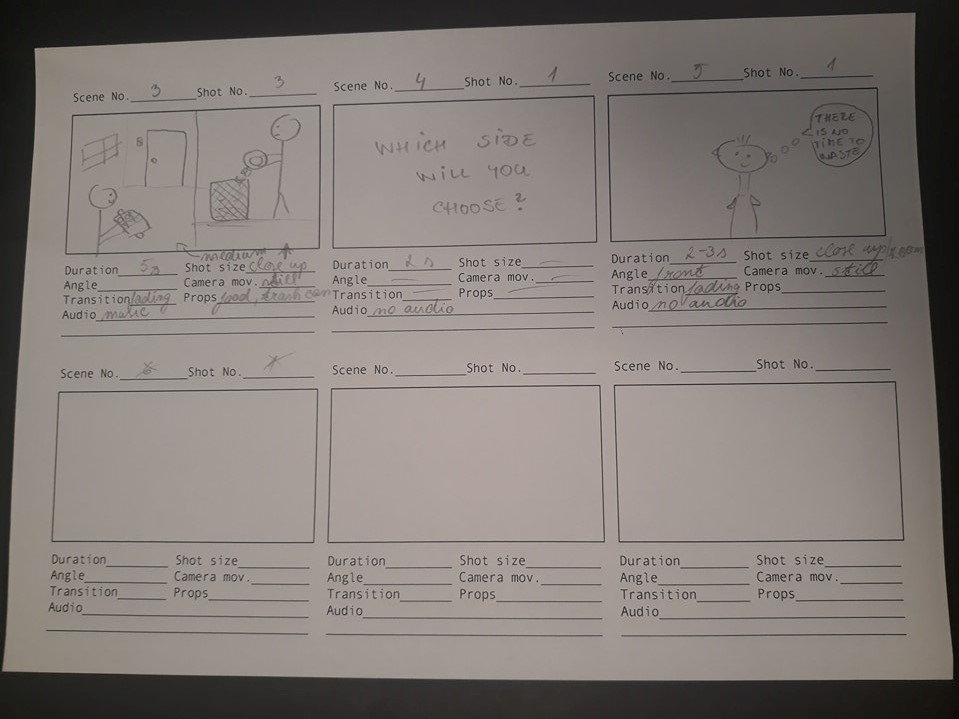 Scene No. 3 Shot No. 3
medium
Duration 5s Shot size close up
Angle Camera mov. still
Transition fading Props food, trash can
Audio music
Scene No. 4 Shot No. 1
WHICH SIDE
WILL YOU
CHOOSE?
Duration 2s Shot size
Angle Camera mov.
Transition Props
Audio no audio
Scene No. 5 Shot No. 1
THERE
IS NO
TIME TO
WASTE
Duration 2-3s Shot size close up/zoom
Angle front Camera mov. still
Transition fading Props
Audio no audio
Scene No. Shot No.
Duration Shot size
Angle Camera mov.
Transition Props
Audio
Scene No. Shot No.
Duration Shot size
Angle Camera mov.
Transition Props
Audio
Scene No. Shot No.
Duration Shot size
Angle Camera mov.
Transition Props
Audio